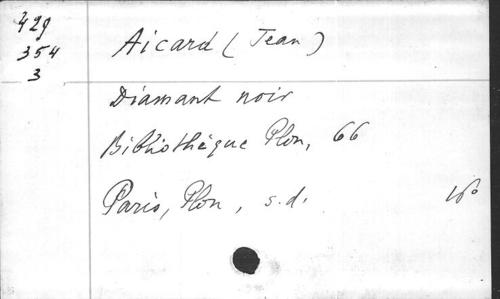 429
354
3
Aicard (Jean)
Diamant noir
Bibliothèque Plon, 66
Paris, Plon, s.d. 16°